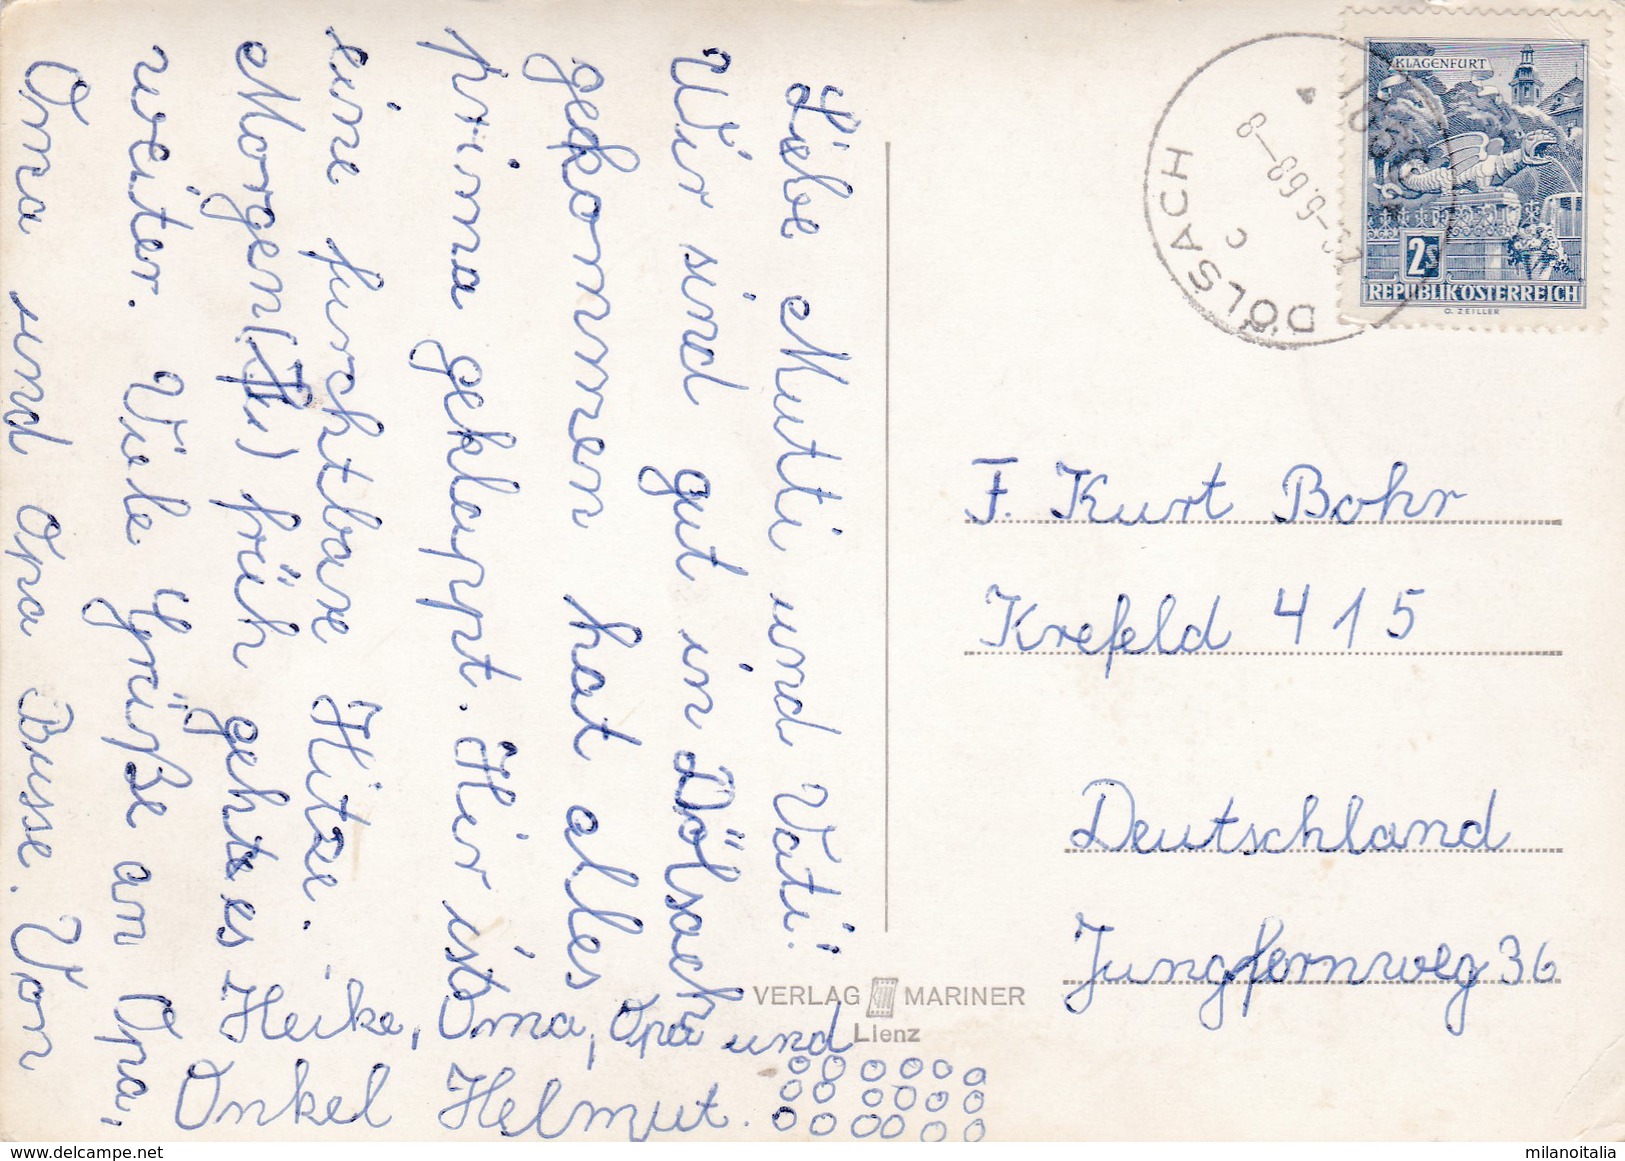 Liebe Mutti und Vati!
Wir sind gut in Dölsach
gekommen hat alles
prima geklappt. Hir ist
eine furchtbare Hitze.
Morgen früh geht es
weiter. Viele Grüße an Opa,
Oma und Opa Busse. Von
Heike, Oma, Opa und
Onkel Helmut.
VERLAG MARINER
Lienz
DÖLSACH
KLAGENFURT
2s
REPUBLIK ÖSTERREICH
O. ZEILLER
F. Kurt Bohr
Krefeld 415
Deutschland
Jungfernweg 36
delcampe.net
milanoitalia